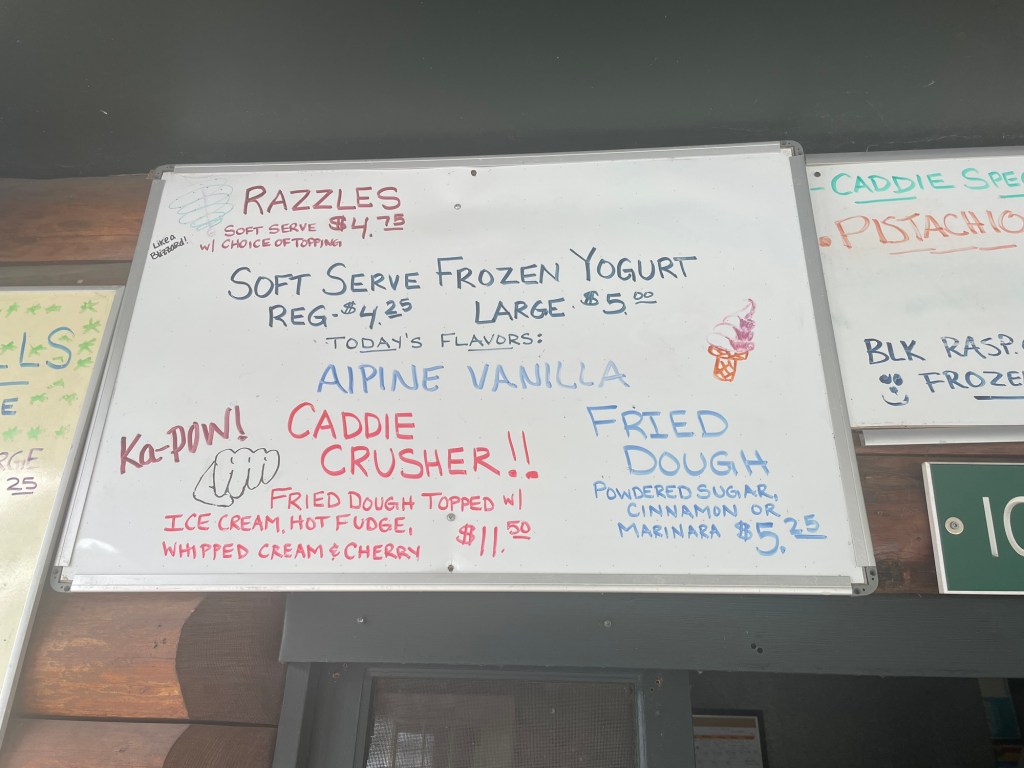 RAZZLES
SOFT SERVE $4.75
W/ CHOICE OF TOPPING
Like a
Blizzard!
SOFT SERVE FROZEN YOGURT
REG-$4.25 LARGE-$5.00
TODAY'S FLAVORS:
AlPINE VANILLA
Ka-POW!
CADDIE
CRUSHER!!
FRIED DOUGH TOPPED W/
ICE CREAM, HOT FUDGE,
WHIPPED CREAM & CHERRY
$11.50
FRIED
DOUGH
POWDERED SUGAR,
CINNAMON OR
MARINARA $5.25
- CADDIE SPEC
• PISTACHIO
BLK RASP.
FROZE
LLS
E
RGE
25
IC